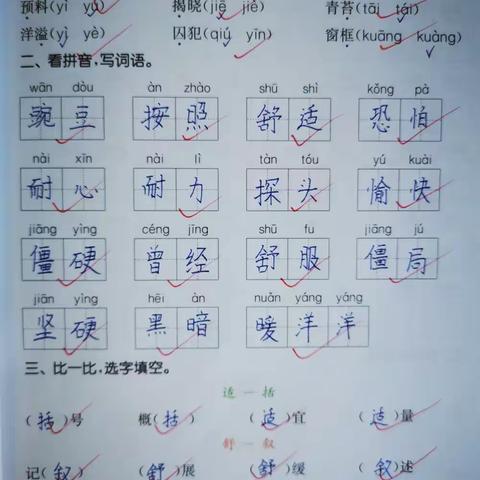 预料(yì yù) 揭晓(jiē jiě) 青苔(tāi tái)
洋溢(yì yè) 囚犯(qiú yīn) 窗框(kuāng kuàng)
二、看拼音,写词语。
wān dòu àn zhào shū shì kǒng pà
豌豆 按照 舒适 恐怕
nài xīn nài lì tàn tóu yú kuài
耐心 耐力 探头 愉快
jiāng yìng céng jīng shū fu jiāng jú
僵硬 曾经 舒服 僵局
jiān yìng hēi àn nuǎn yáng yáng
坚硬 黑暗 暖洋洋
三、比一比,选字填空。
适 一 括
(括)号 概(括) (适)宜 (适)量
舒 一 叙
记(叙) (舒)展 (舒)缓 (叙)述